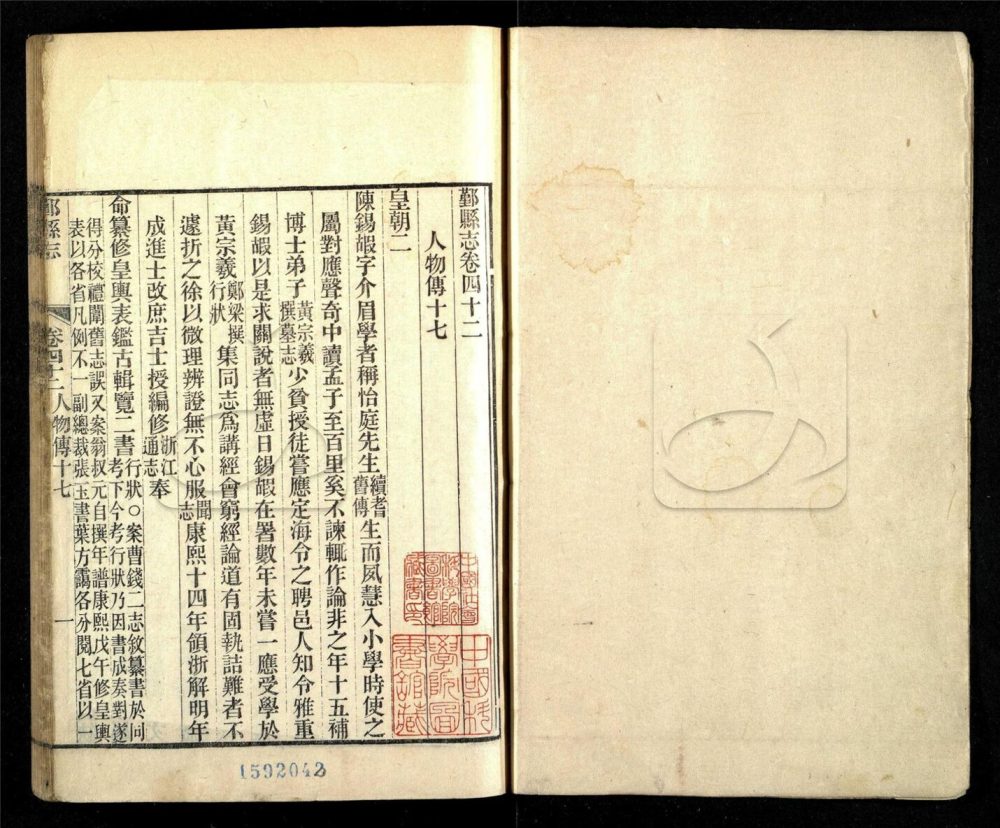 鄞縣志卷四十二
人物傳十七
皇朝二
陳錫嘏字介眉學者稱怡庭先生續耆舊傳生而夙慧入小學時使之
屬對應聲奇中讀孟子至百里奚不諫輒作論非之年十五補
博士弟子黃宗羲撰墓志少貧授徒嘗應定海令之聘邑人知令雅重
錫嘏以是求關說者無虛日錫嘏在署數年未嘗一應受學於
黃宗羲鄭梁撰行狀集同志爲講經會窮經論道有固執詰難者不
遽折之徐以微理辨證無不心服聞志康熙十四年領浙解明年
成進士改庶吉士授編修浙江通志奉
命纂修皇輿表鑑古輯覽二書行狀○案曹錢二志敘纂書於同考下今考行狀乃因書成奏對遂
得分校禮闈舊志誤又案翁叔元自撰年譜康熙戊午修皇輿表以各省凡例不一副總裁張玉書葉方靄各分閱七省以一
鄞縣志
卷四十二人物傳十七
一
中國科學院圖書館藏
1592042